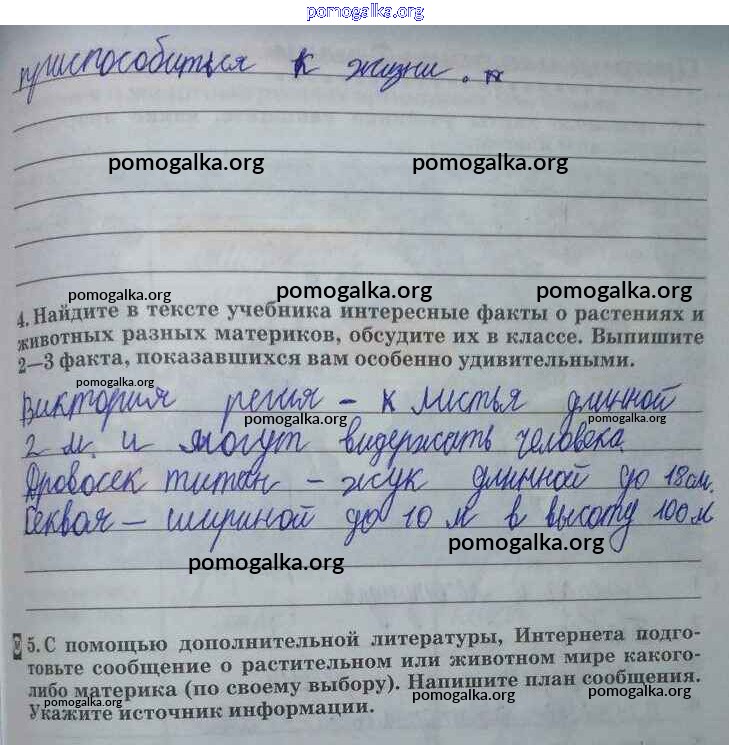 pomogalka.org
приспособиться к жизни.
pomogalka.org pomogalka.org
pomogalka.org pomogalka.org pomogalka.org
4. Найдите в тексте учебника интересные факты о растениях и
животных разных материков, обсудите их в классе. Выпишите
2—3 факта, показавшихся вам особенно удивительными.
pomogalka.org
Виктория регия – к листья длинной
pomogalka.org pomogalka.org
2 м. и могут видержать человека
Дровосек титан – жук длинной до 18 см.
Секвоя – шириной до 10 м в высоту 100 м
pomogalka.org
pomogalka.org
5. С помощью дополнительной литературы, Интернета подго-
товьте сообщение о растительном или животном мире какого-
pomogalka.org pomogalka.org
либо материка (по своему выбору). Напишите план сообщения.
pomogalka.org pomogalka.org pomogalka.org
Укажите источник информации.